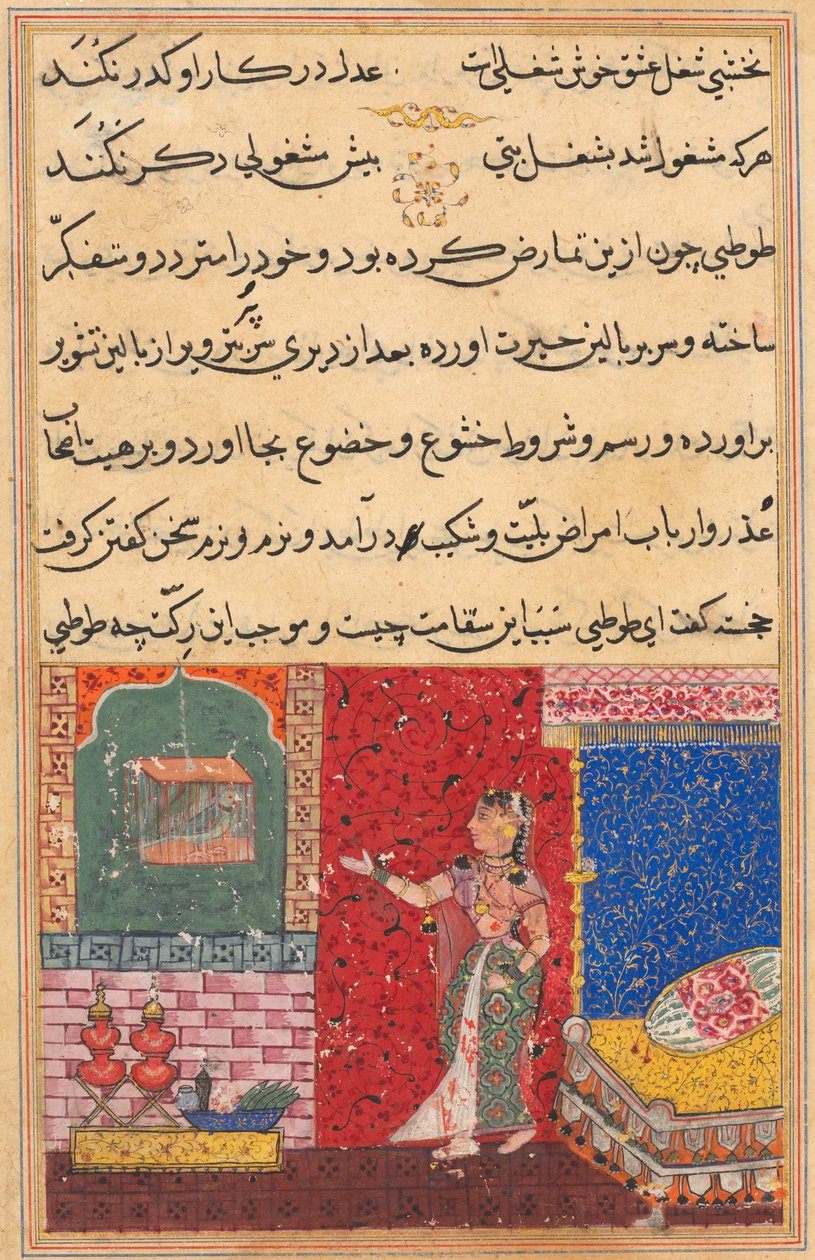 نخشبي شغل عشق خوش شغلي است عدل در کار او کدر نکُنَد
هرکه مشغول شد بشغل بتي بیش مشغولي دکر نَکُنَد
طوطي چون ازین تمارض کرده بود و خود را متردد و متفکّر
ساخته و سر بر بالین حیرت اورده بعد از دیري سر پُر و پر از بالین تشویر
براورده و رسم و شروط خشوع و خضوع بجا اورد و بر هیت اصحاب
عُذر و ارباب امراض بلیّت و شکیب درآمد و نرم و نرم سخن کفتن کرفت
خجسته کفت اي طوطي سَبَبَ این سقامت چیست و موجب این رکّت چه طوطي